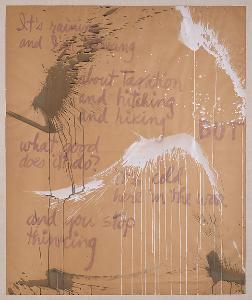 It's raining
and I'm
about
and hitching
and hiking
BUT
what good
does it do?
it's cold
here in the
and you stop
thinking